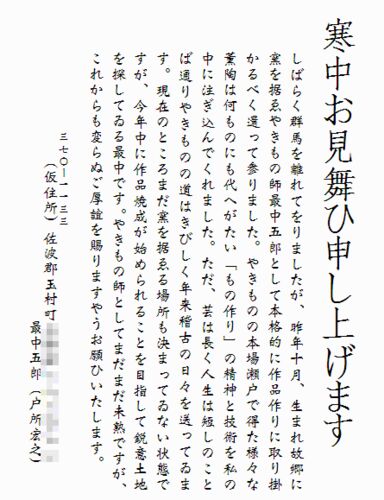 寒中お見舞ひ申し上げます
しばらく群馬を離れてをりましたが、昨年十月、生まれ故郷に
窯を据ゑやきもの師最中五郎として本格的に作品作りに取り掛
かるべく還って参りました。やきものの本場瀬戸で得た様々な
薫陶は何ものにも代へがたい「もの作り」の精神と技術を私の
中に注ぎ込んでくれました。ただ、芸は長く人生は短しのこと
ば通りやきものの道はきびしく年来稽古の日々を送ってゐま
す。現在のところまだ窯を据ゑる場所も決まってゐない状態で
すが、今年中に作品焼成が始められることを目指して鋭意土地
を探してゐる最中です。やきもの師としてまだまだ未熟ですが、
これからも変らぬご厚誼を賜りますやうお願ひいたします。
三七〇ー一一三三
（仮住所）佐波郡玉村町
最中五郎（戸所宏之）